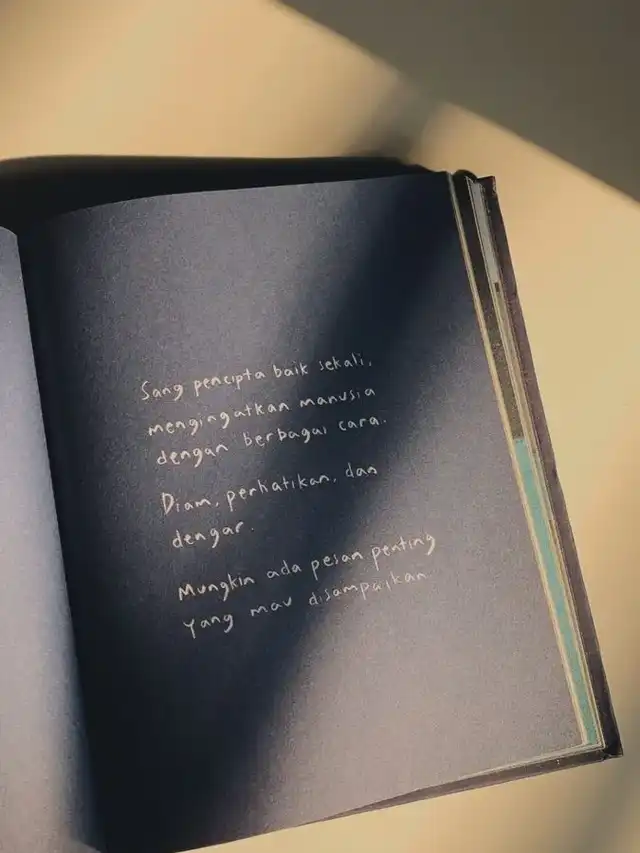 Sang pencipta baik sekali,
mengingatkan manusia
dengan berbagai cara.
Diam, perhatikan, dan
dengar.
Mungkin ada pesan penting
yang mau disampaikan